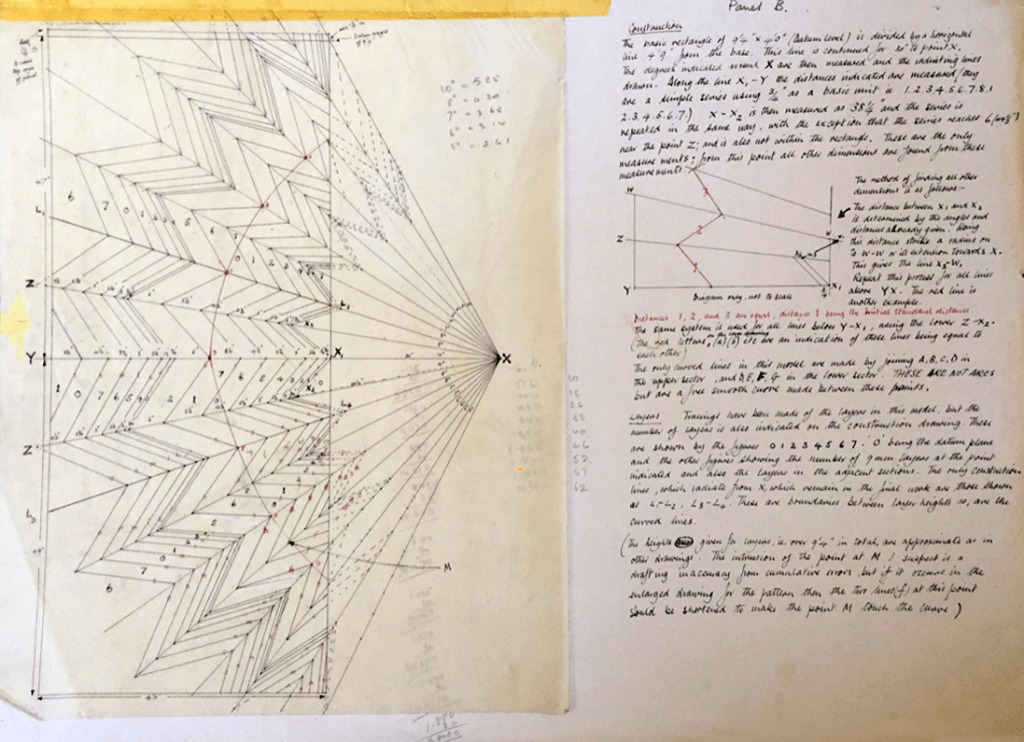 Panel B.
Construction
The basic rectangle of 9'4" x 4'0" (Datum level) is divided by a horizontal
line 4'9" from the base. This line is continued for 20" to point X.
The degrees indicated around X are then measured and the radiating lines
drawn. Along the line X, - Y the distances indicated are measured / they
are a simple series using 3/4" as a basic unit ie 1.2.3.4.5.6.7.8.1
2.3.4.5.6.7.) X - X2 is then measured as 38 1/4" and the series is
repeated in the same way, with the exception that the series reaches 6
near the point Z; and is also not within the rectangle. These are the only
measurements; from this point all other dimensions are found from these
measurements.
The method of finding all other
dimensions is as follows:-
The distance between X1 and X2
is determined by the angles and
distances already given. Using
this distance strike a radius on
to W-W or its extension towards X.
This gives the line X3-W.
Repeat this process for all lines
above YX. The red line is
another example.
W
Z
Y
X1
1
2
3
Diagram only, not to scale
Distances 1, 2, and 3 are equal, distance 1 being the initial standard distance
The same system is used for all lines below Y-X1, using the lower Z-X2.
(the red letters, (a) (b) etc are an indication of these lines being equal to
each other)
The only curved lines in this model are made by joining A, B, C, D in
the upper sector, and D, E, F, G in the lower sector. THESE ARE NOT ARCS
but are a free smooth curve made between these points.
Layers Tracings have been made of the layers in this model, but the
number of layers is also indicated on the construction drawing. These
are shown by the figures 0 1 2 3 4 5 6 7. '0' being the datum plane
and the other figures showing the number of 9mm layers at the point
indicated and also the layers in the adjacent sections. The only construction
lines, which radiate from X, which remain in the final work are those shown
as L1-L2, L3-L4. These are boundaries between layer heights as, are the
curved lines.
(The heights given for layers, ie. over 9'4" in total, are approximate as in
other drawings. The intrusion of the point at M I suspect is a
drafting inaccuracy from cumulative errors, but if it occurs in the
enlarged drawing for the pattern then the two lines (f) at this point
should be shortened to make the point M touch the curve)
10° = 5.28
6° = 3.14
5° = 2.61
L1
Z
Y
Z
L3
X1
X
M